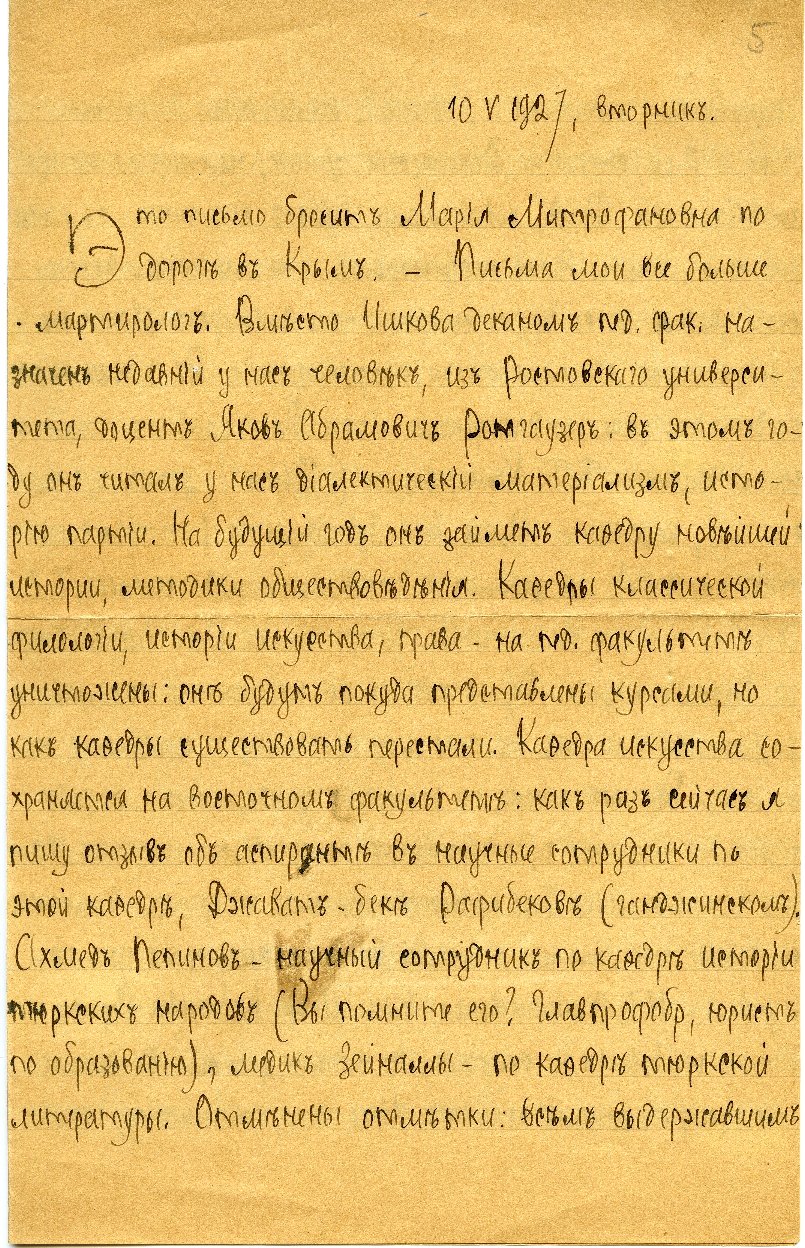 5
10 V 1927, вторникъ.
Это письмо броситъ Марія Митрофановна по
дорогѣ въ Крымъ. – Письма мои все больше
мартирологъ. Вмѣсто Ишкова деканомъ пед. фак. на-
значенъ недавній у насъ человѣкъ, изъ Ростовскаго универси-
тета, доцентъ Яковъ Абрамовичъ Ротгаузеръ: въ этомъ го-
ду онъ читалъ у насъ діалектическій матеріализмъ, исто-
рію партіи. На будущій годъ онъ займетъ каѳедру новѣйшей
истории, методики обществовѣдѣнія. Каѳедры классической
филологіи, исторіи искусства, права – на пед. факультетѣ
уничтожены: онѣ будутъ покуда представлены курсами, но
какъ каѳедры существовать перестали. Каѳедра искусства со-
храняется на восточномъ факультетѣ: какъ разъ сейчасъ я
пишу отзывъ объ аспирантѣ въ научные сотрудники по
этой каѳедрѣ, Джаватъ-бекѣ Рафибековѣ (ганджинскомъ).
Ахмедъ Пепиновъ – научный сотрудникъ по каѳедрѣ исторіи
тюркскихъ народовъ (Вы помните его? Главпрофобр, юристъ
по образованію), медикъ Зейналлы – по каѳедрѣ тюркской
литературы. Отмѣнены отмѣтки: всѣмъ выдержавшимъ